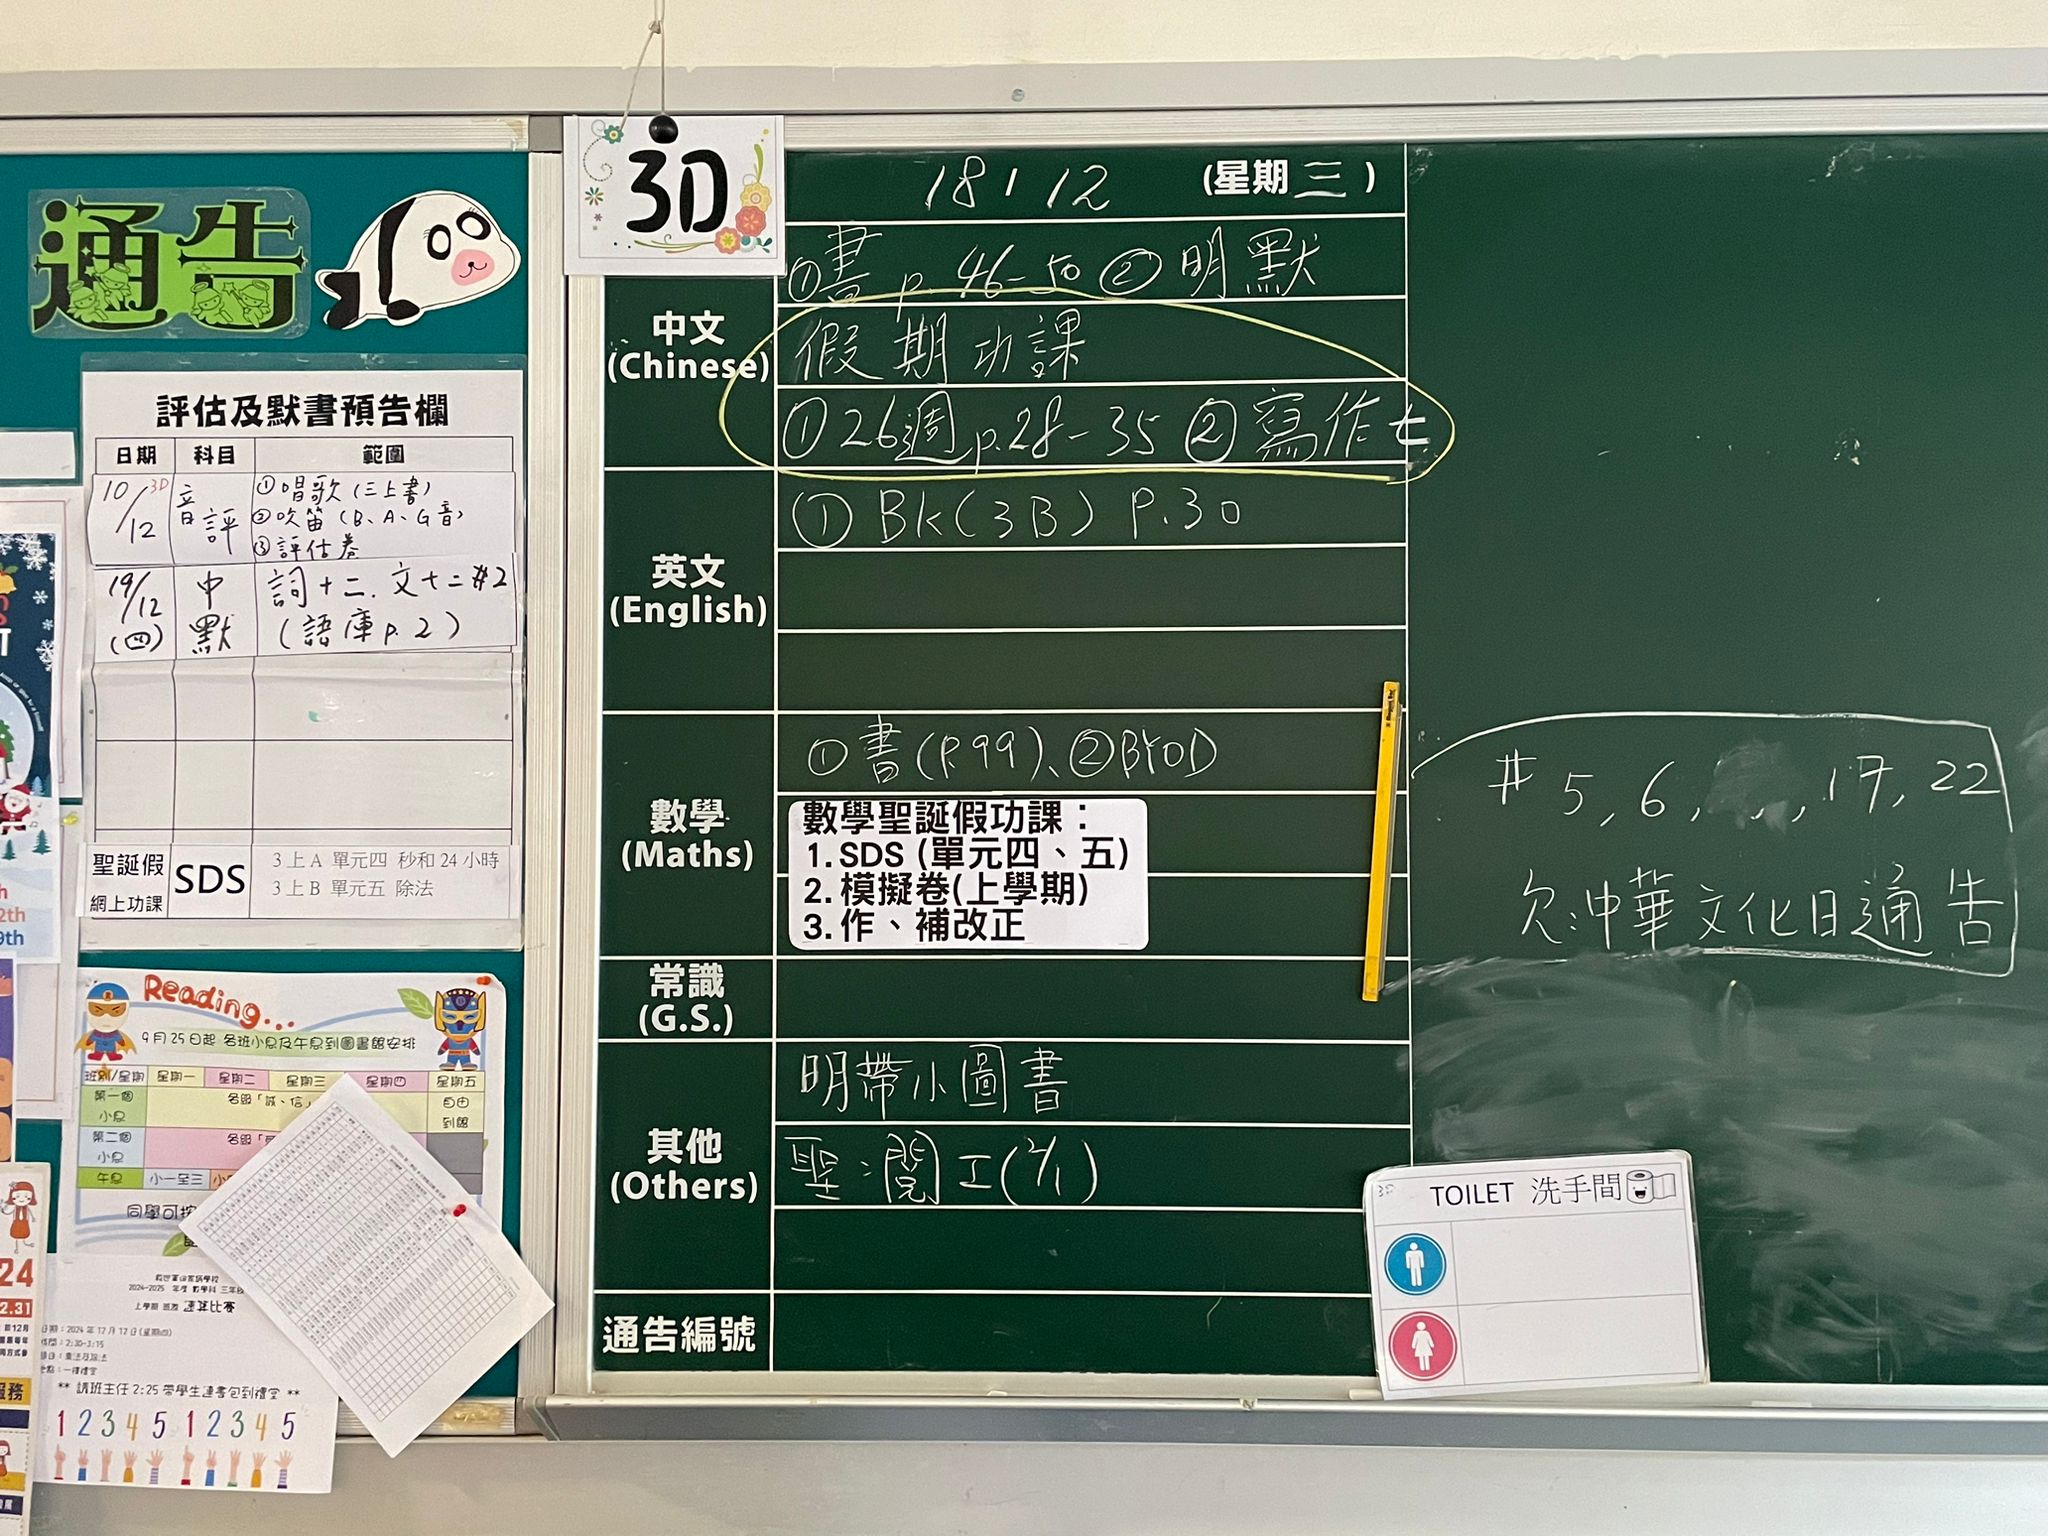 通告
評估及默書預告欄
日期 科目 範圍
10/12 3D 音評 ①唱歌(三上書)
②吹笛(B、A、G音)
③評估卷
19/12 (四) 中默 詞十二、文十二#2
(語庫p.2)
聖誕假
網上功課
SDS
3上A 單元四 秒和24小時
3上B 單元五 除法
Reading...
9月25日起 各班小息及午息到圖書館安排
班別/星期 星期一 星期二 星期三 星期四 星期五
第一個小息 各級「誠、信」 自由到館
第二個小息 各級
午息 小一至三
同學可按
2024-2025 年度 數學科 三年級
上學期 班際 速算比賽
日期：2024年12月12日(星期四)
時間：2:30-3:15
** 請班主任2:25帶學生連書包到禮堂 **
1 2 3 4 5 1 2 3 4 5
3D
18/12 (星期三)
中文
(Chinese)
①書p.46-50 ②明默
假期功課
①26週p.28-35 ②寫作七
英文
(English)
①Bk(3B) P.30
數學
(Maths)
①書(P.99)、②BYOD
數學聖誕假功課：
1. SDS (單元四、五)
2. 模擬卷(上學期)
3. 作、補改正
常識
(G.S.)
其他
(Others)
明帶小圖書
聖:閱工(2/1)
通告編號
# 5, 6, 17, 22
欠:中華文化日通告
3D
TOILET 洗手間